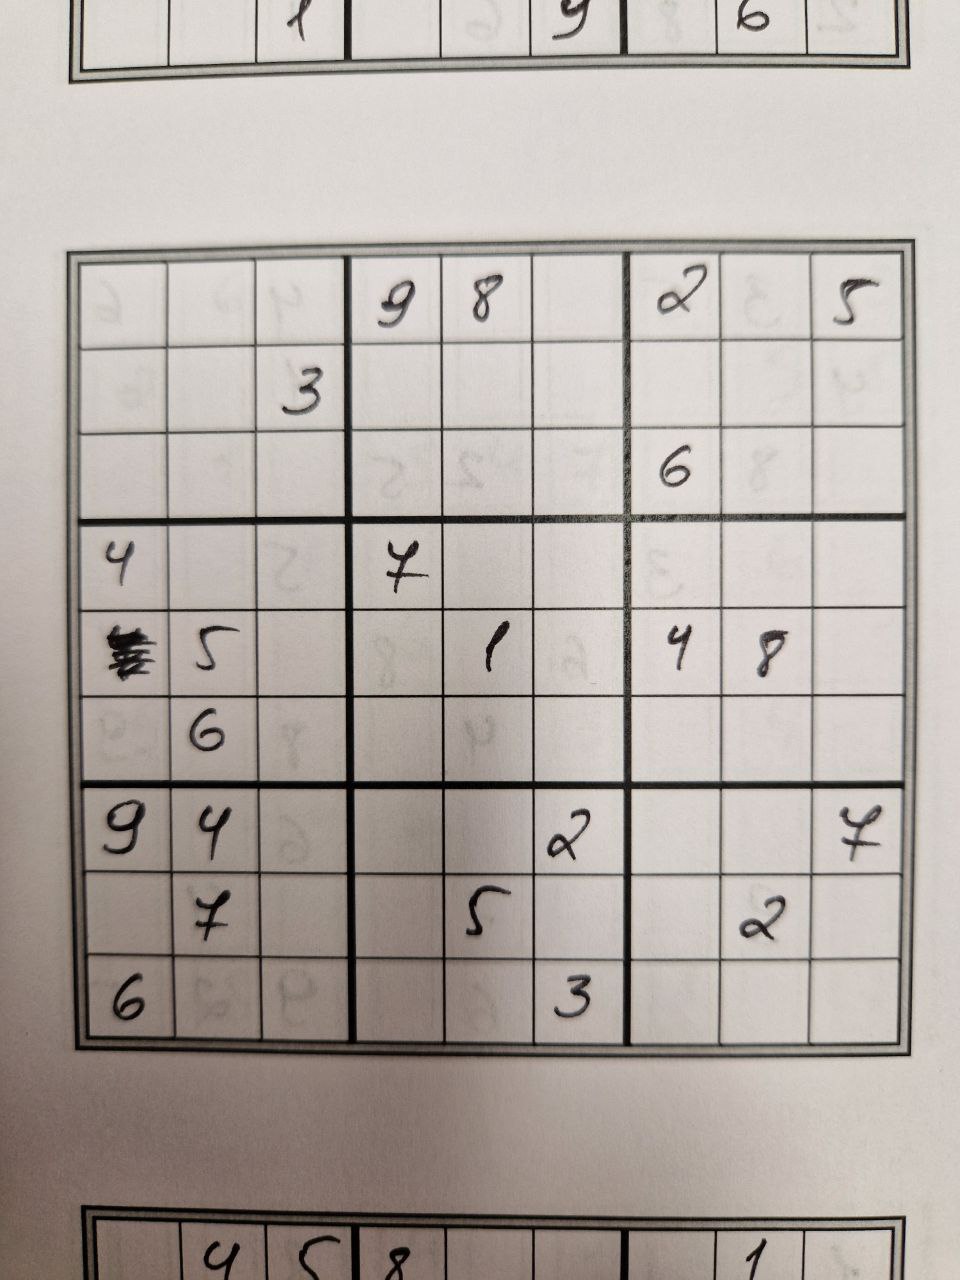 1 9 6
9 8 2 5
3
6
4 7
5 1 4 8
6
9 4 2 7
7 5 2
6 3
4 5 8 1